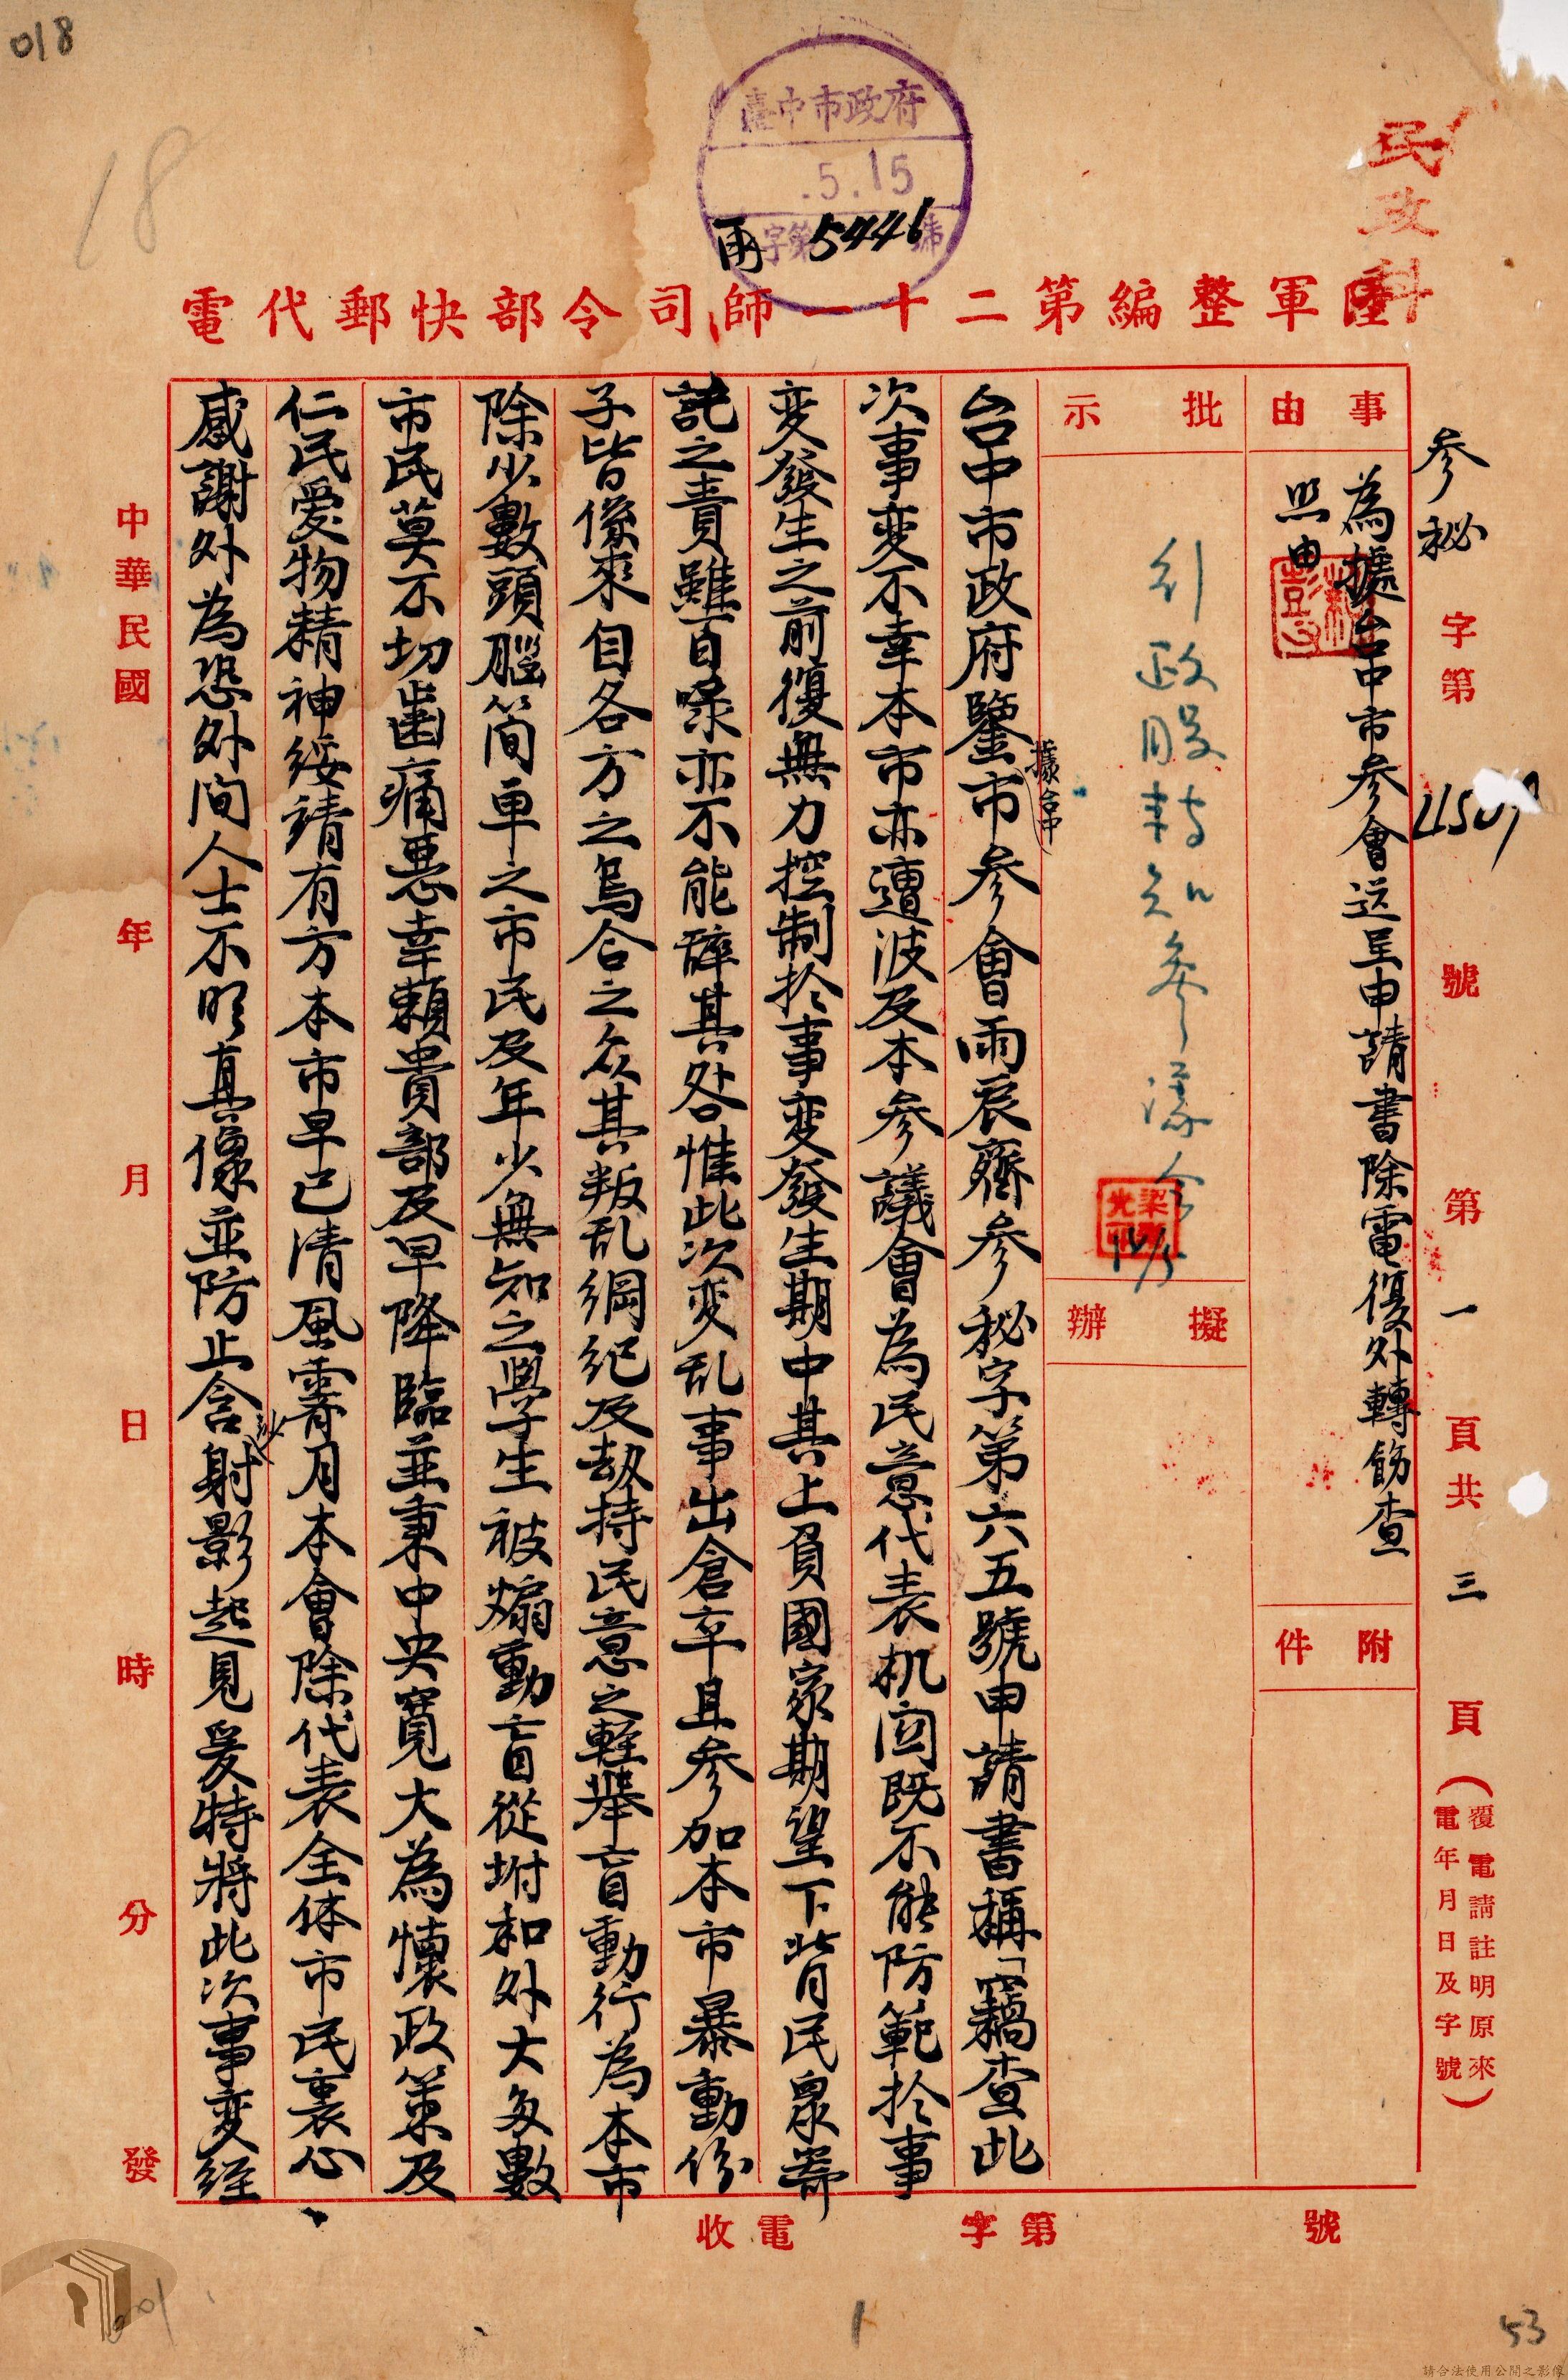 018
18
臺中市政府
.5.15
字第5446號
民政科
陸軍整編第二十一師司令部快郵代電
參秘字第4509號第一頁共三頁(覆電請註明原來電年月日及字號)
事由
為據台中市參會送呈申請書除電復外轉飭查
照由
附件
批示
擬辦
台中市政府鑒(據台中)市參會雨辰齊參秘字第六五號申請書稱「竊查此
次事变不幸本市亦遭波及本參議會為民意代表机関既不能防範於事
变發生之前復無力控制於事变發生期中其上負國家期望下背民眾寄
託之責雖百喙亦不能辭其咎惟此次变乱事出倉卒且參加本市暴動份
子皆係來自各方之烏合之众其叛乱綱紀及劫持民意之輕舉盲動行為本市
除少數頭腦简单之市民及年少無知之學生被煽動盲從坿和外大多數
市民莫不切齒痛恶幸賴貴部及早降臨並秉中央寬大為懷政策及
仁民爱物精神綏靖有方本市早已清風霽月本會除代表全体市民衷心
感謝外為恐外间人士不明真像並防止含沙射影起見爰特將此次事变經
中華民國 年 月 日 時 分 發
收電 字第 號
1
53
請合法使用公開之影像